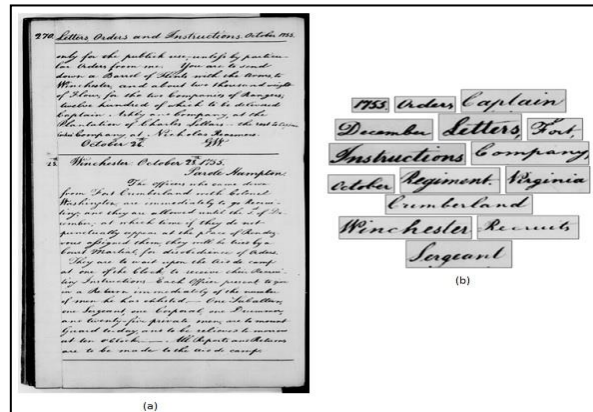 270. Letters Orders and Instructions October 1755.
only for the publick use, unless by particu-
lar Orders from me. You are to send
down a Barrel of Flints with the Arms, to
Winchester, and about two thousand weight
of Flour, for the two Companies of Rangers;
twelve hundred of which to be delivered
Captain Ashby and Company, at the
Plantation of Charles Sellars - the rest to Captain
Cocks Company at Nicholas Reasmers.
October 26. GW
Winchester October 28th 1755.
Parole Hampton.
The officers who came down
from Fort Cumberland with Colonel
Washington, are immediately to go Recrui-
ting; and they are allowed until the 1st of De-
cember; at which time if they do not
punctually appear at the place of Rendez-
vous assigned them, they will be tried by a
Court Martial, for disobedience of Orders.
They are to wait upon the Aid de camp
at one of the Clock to receive their Recrui-
ting Instructions. Each Officer present to give
in a Return immediately of the number
of men he has enlisted. One Subaltern,
one Sergeant, one Corporal, one Drummer,
and twenty-five private men, are to mount
Guard to day, and to be relieved to morrow
at ten o'clock. All Reports and Returns
are to be made to the Aid de camp.
(a)
1755 Orders Captain
December Letters, Fort
Instructions Company,
October Regiment. Virginia
Cumberland
Winchester Recruits
Sergeant
(b)